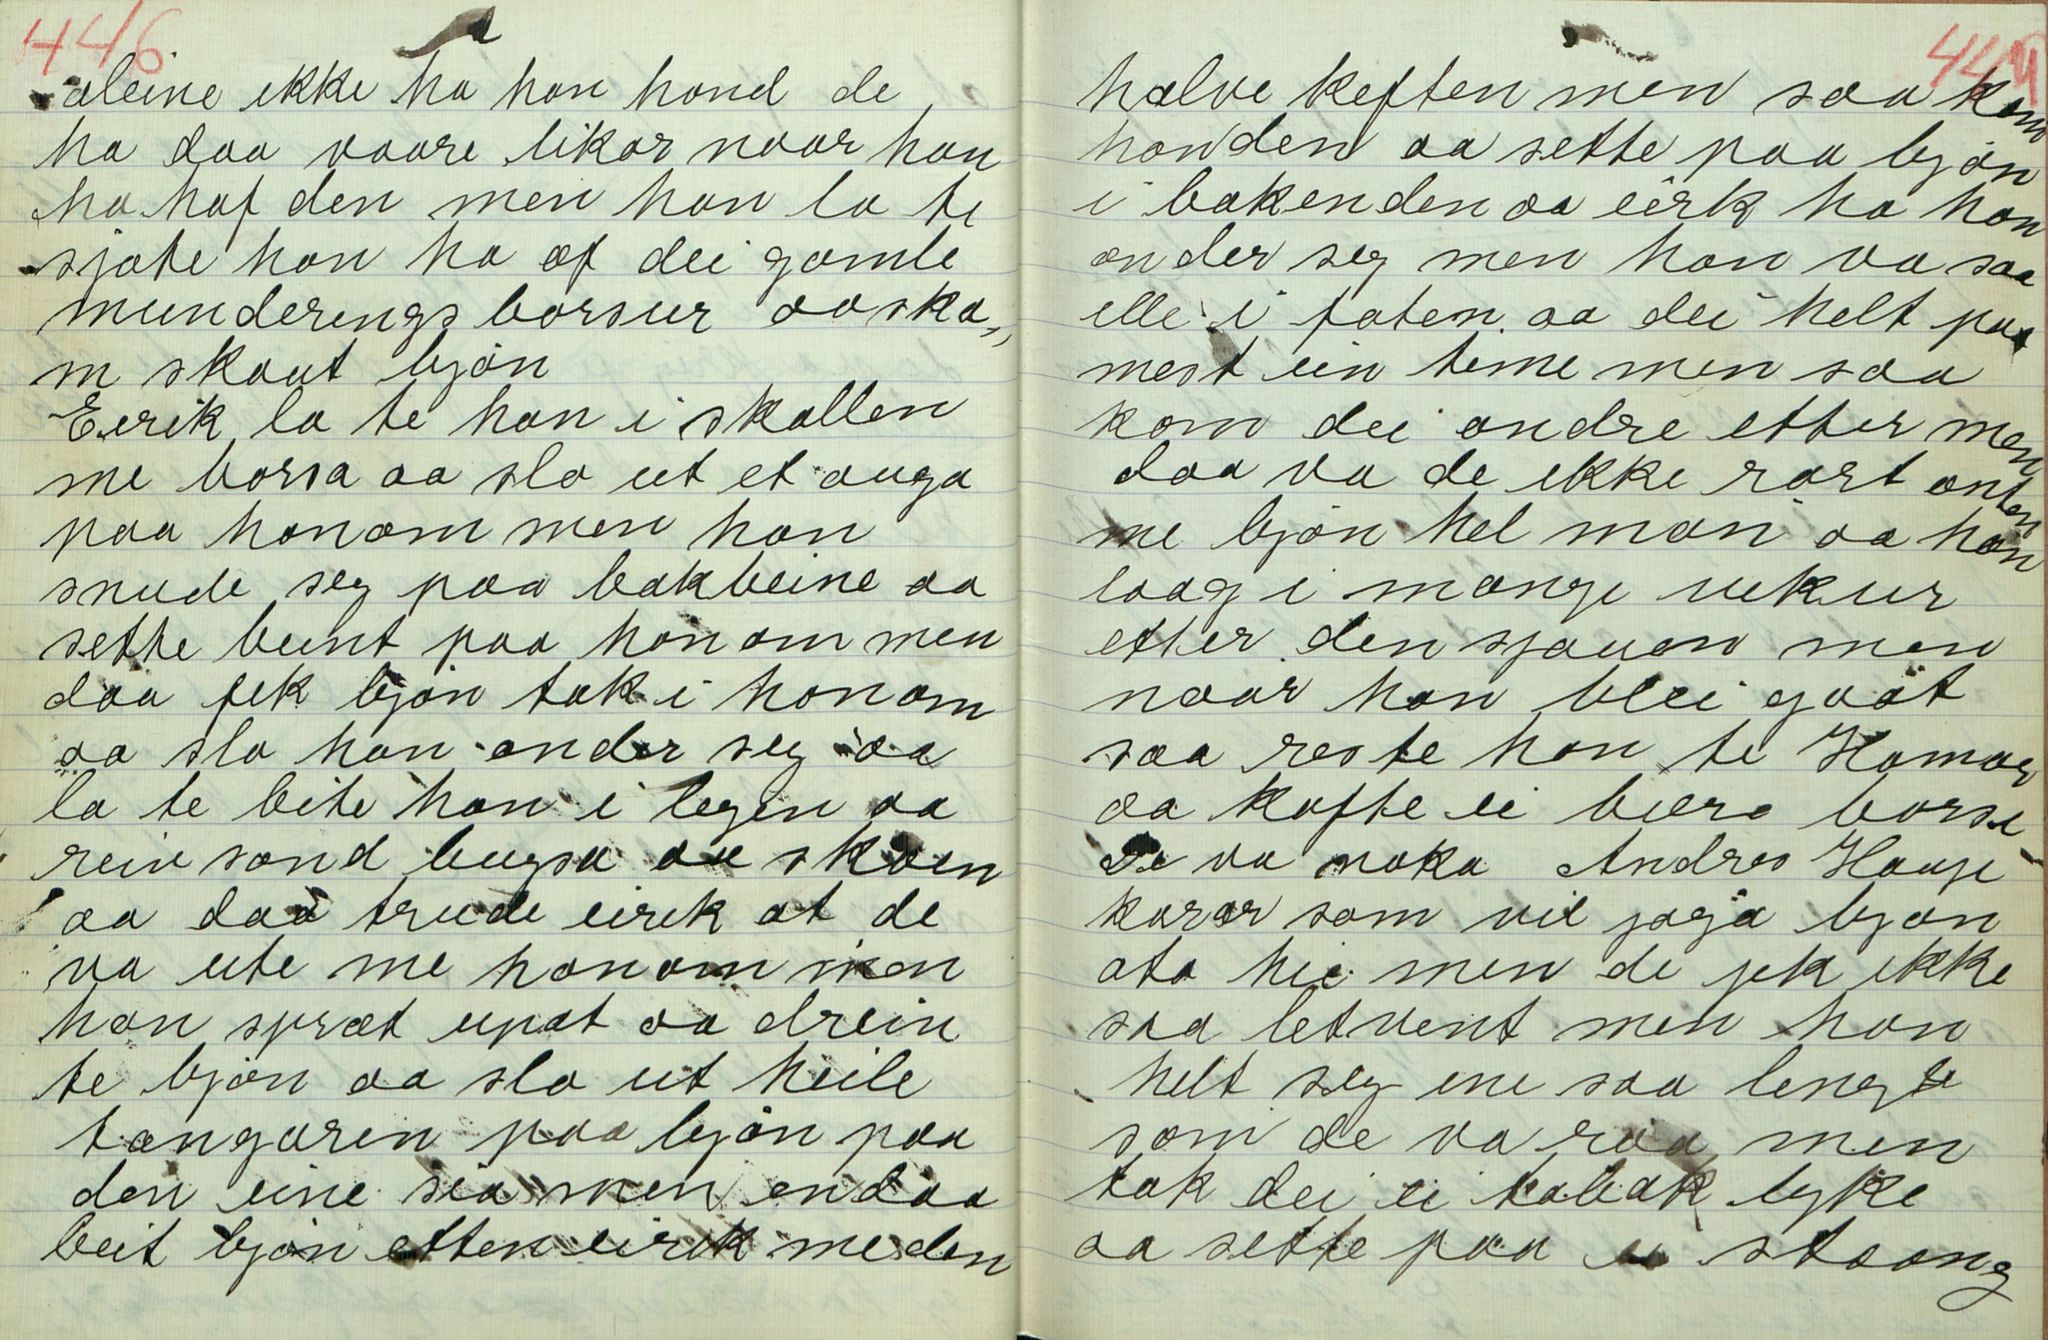 446
aleine ikke ha han hond de
ha daa vaare likar naar han
ha haf den men han la te
sjøte han ha af dei gamle
munderengs børsur aa ska,,
m skaut bjøn
Eerik la te han i skallen
me børsa aa slo ut et auga
paa honom men han
snude seg paa bakbeine aa
sette beint paa honom men
daa fek bjøn tak i honom
aa slo han onder seg aa
la te bite han i legen aa
reiv sond bugsa aa skoen
aa daa trude eirik at de
va ute me honom men
han spræt upat aa drein
te bjøn aa slo ut heile
tangaren paa bjøn paa
den eine sia men endaa
beit bjøn etten eirik me den
447
halve keften men saa kom
honden aa sette paa bjøn
i bakenden aa eirk ha han
onder seg men han va saa
elle i foten aa dei helt paa
mest ein time men saa
kom dei andre etter men
daa va de ikke rart anten
me bjøn hel man aa han
laag i mange uekur
etter den sjauen men
naar han blei goót
saa reste han te Hamar
aa køfte ei bære børse
De va noka Andres Hauge
karar som vil jaga bjøn
ata hie men de jek ikke
saa letvent men han
helt seg ine saa lengte
som de va raa men
tok dei ei tabak byke
aa sette paa ei staang